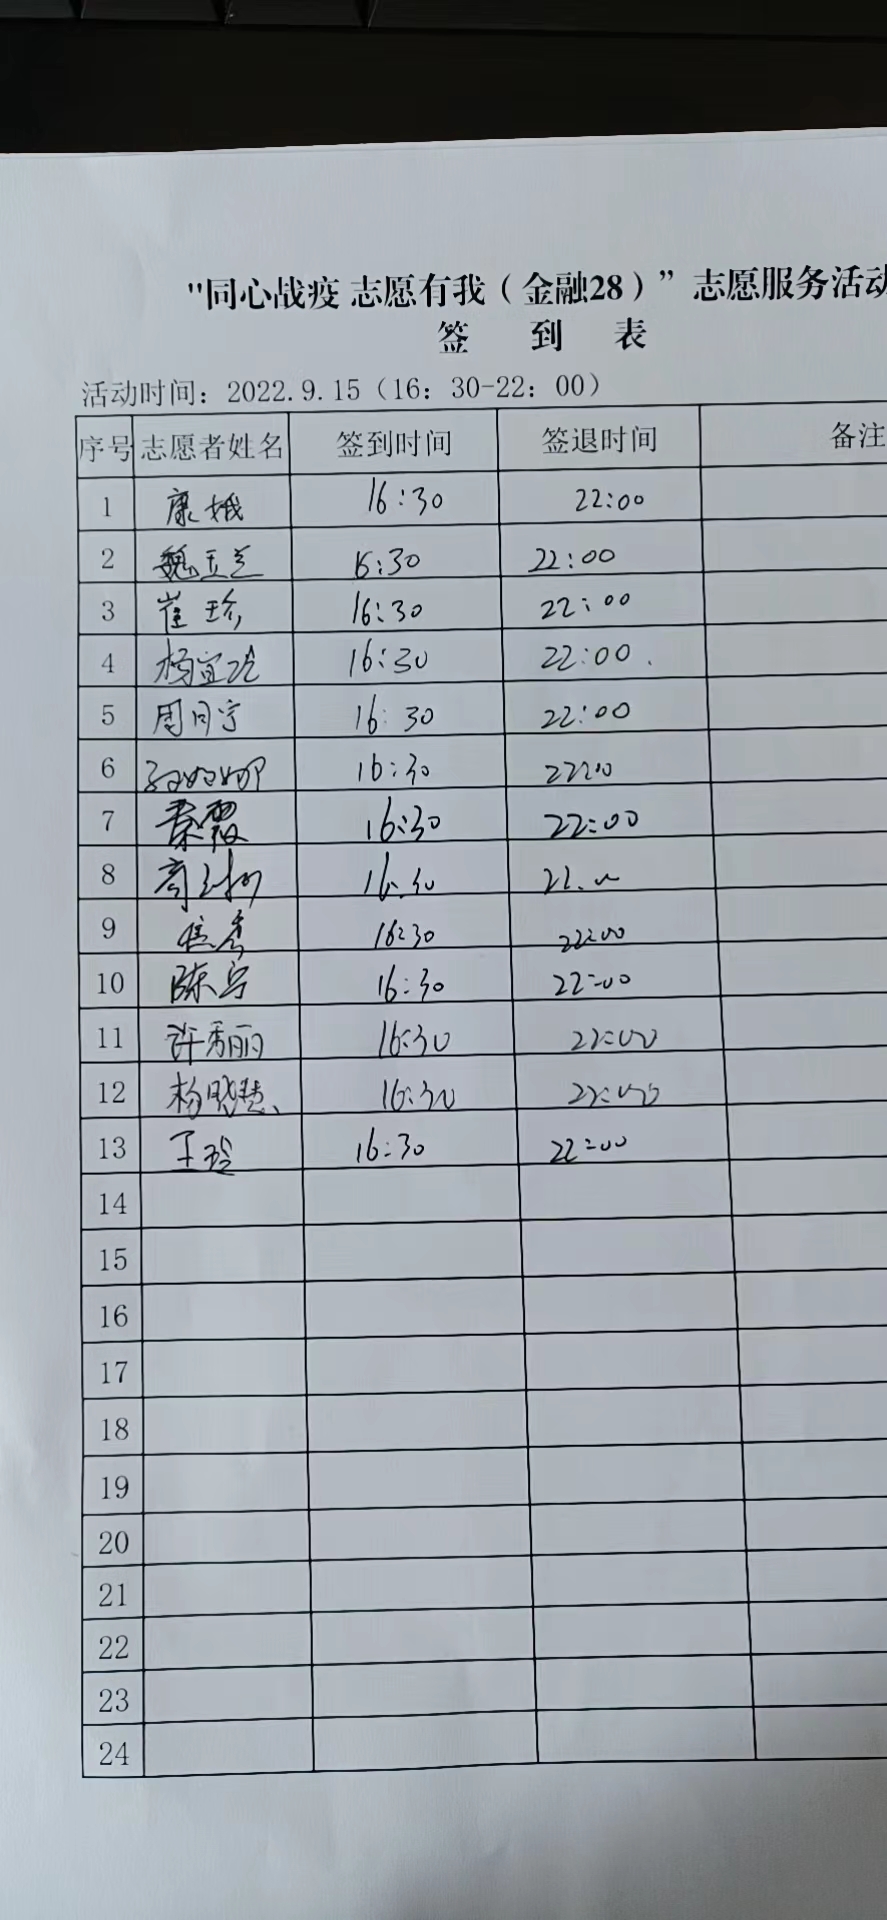 "同心战疫 志愿有我（金融28）”志愿服务活动
签 到 表
活动时间：2022.9.15（16：30-22：00）
序号 志愿者姓名 签到时间 签退时间 备注
1 康娥 16:30 22:00
2 魏玉芝 16:30 22:00
3 崔珍 16:30 22:00
4 杨宜 16:30 22:00
5 周月宇 16:30 22:00
6 16:30
7 秦霞 16:30 22:00
8 16:30
9 16:30 22:00
10 陈宇 16:30 22:00
11 许秀丽 16:30 22:00
12 杨晓慧 16:30 22:00
13 王玲 16:30 22:00
14
15
16
17
18
19
20
21
22
23
24